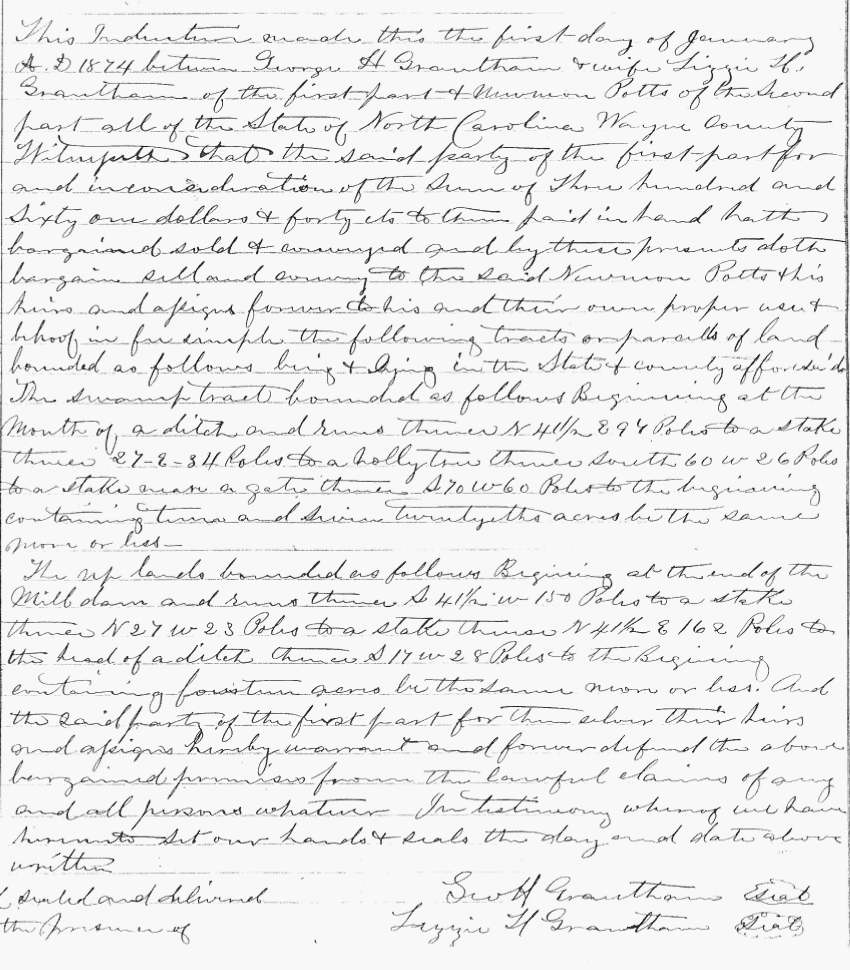 This Indenture made this the first day of January
A. D 1874 between George H Grantham & wife Lizzie H.
Grantham of the first part & Newmon Potts of the Second
part all of the State of North Carolina Wayne County
Witnesseth that the said party of the first part for
and inconsideration of the Sum of Three hundred and
Sixty one dollars & forty cts to them paid in hand hath
bargained sold & conveyed and by these presents doth
bargain sell and convey to the said Newmon Potts & his
heirs and assigns forever to his and their own proper use &
behoof in fee simple the following tracts or parcells of land
bounded as follows being & lying in the State & county afforesaid
The swamp tract bounded as follows Beginning at the
Mouth of a ditch and runs thence N 41½ E 94 Poles to a stake
thence 27-E-34 Poles to a holly tree thence South 60 W 26 Poles
to a stake near a gate thence S 70 W 60 Poles to the beginning
containing and Seven twentyeths acres be the same
more or less—
The up lands bounded as follows Begining at the end of the
Mill dam and runs thence S 41½ W 150 Poles to a stake
thence N 27 W 23 Poles to a stake thence N 41½ E 162 Poles to
the head of a ditch thence S 17 W 28 Poles to the Begining
containing fourteen acres be the same more or less. And
the said party of the first part for them selves their heirs
and assigns hereby warrant and forever defend the above
bargained premises from the lawful claims of any
and all persons whatever In testimony whereof we have
hereunto set our hands & seals the day and date above
written
sealed and delivered Geo H Grantham Seal
the presence of Lizzie H Grantham Seal